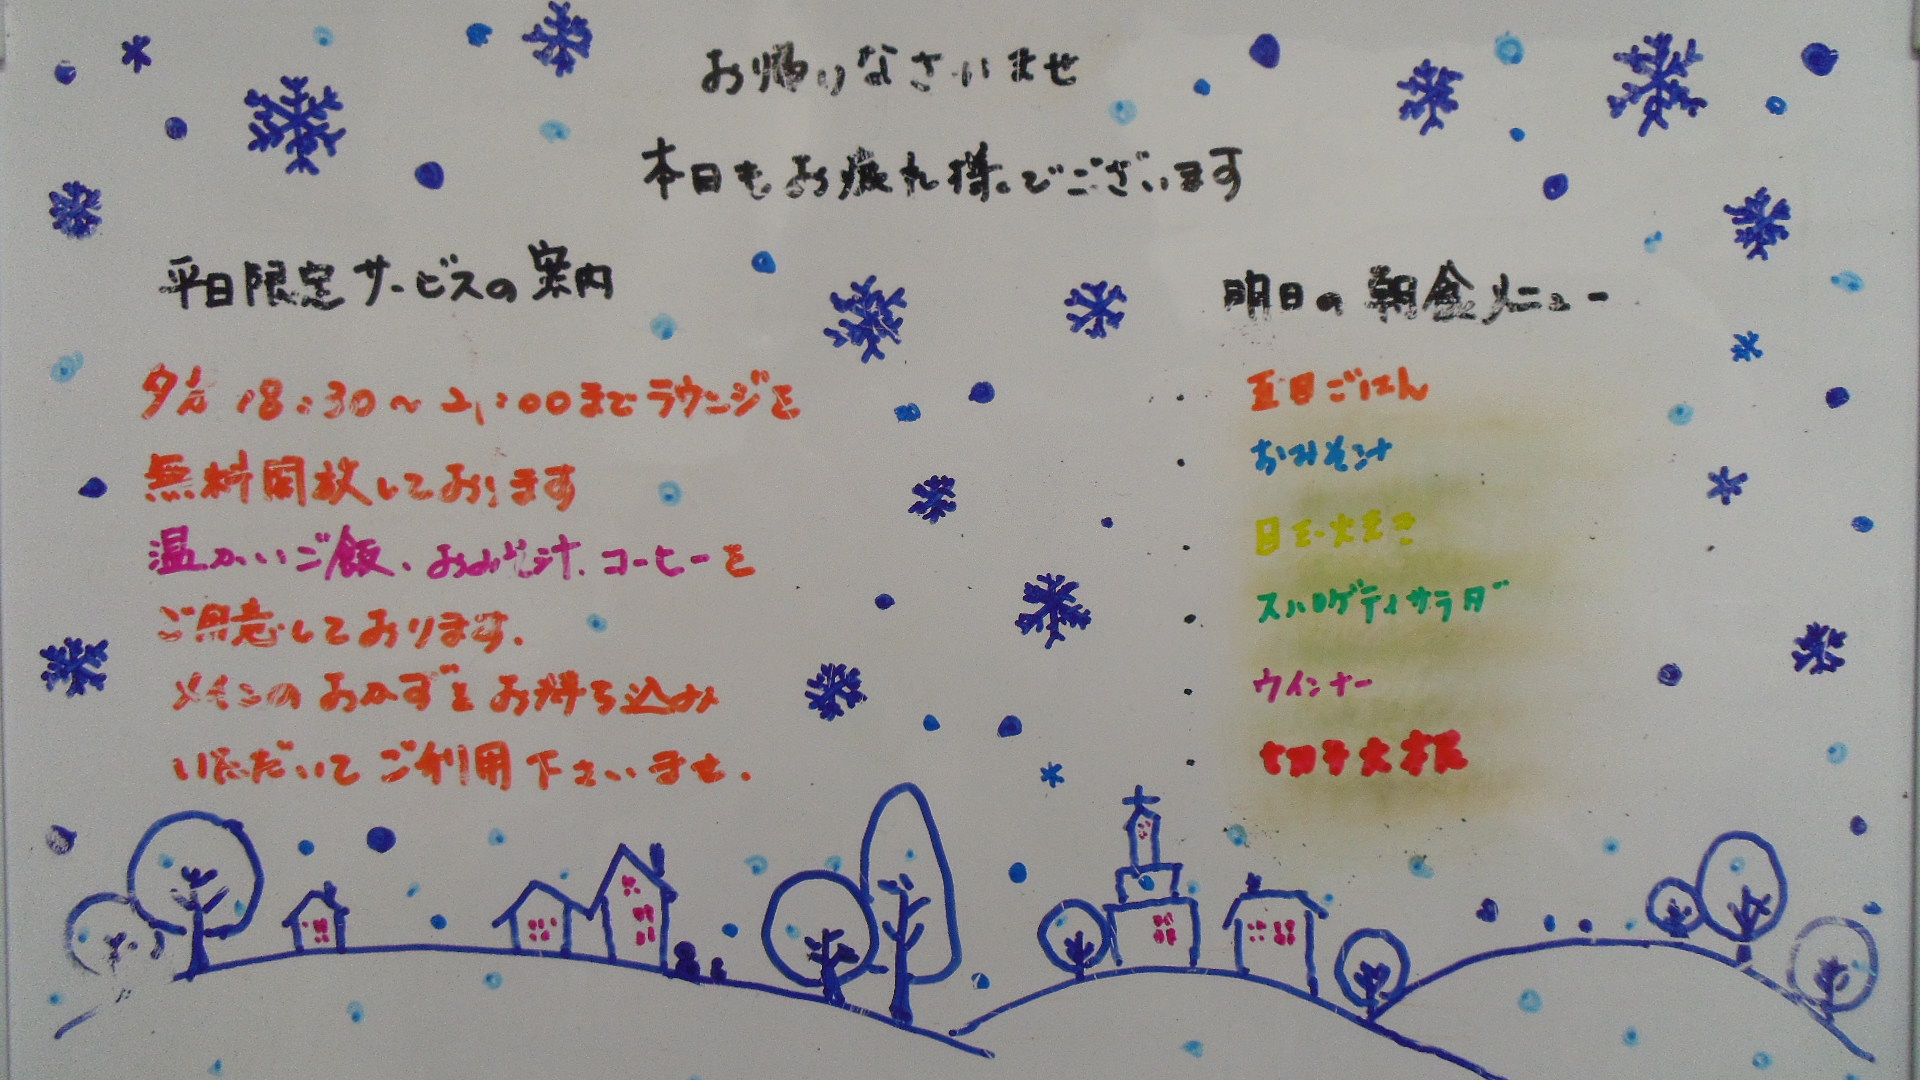 お帰りなさいませ
本日もお疲れ様でございます
平日限定サービスの案内
夕方18:30〜21:00までラウンジを
無料開放しております
温かいご飯、おみそ汁、コーヒーを
ご用意しております。
メインのおかずをお持ち込み
いただいてご利用下さいませ.
明日の朝食メニュー
・五目ごはん
・おみそ汁
・目玉焼き
・スパゲティサラダ
・ウインナー
・切干大根